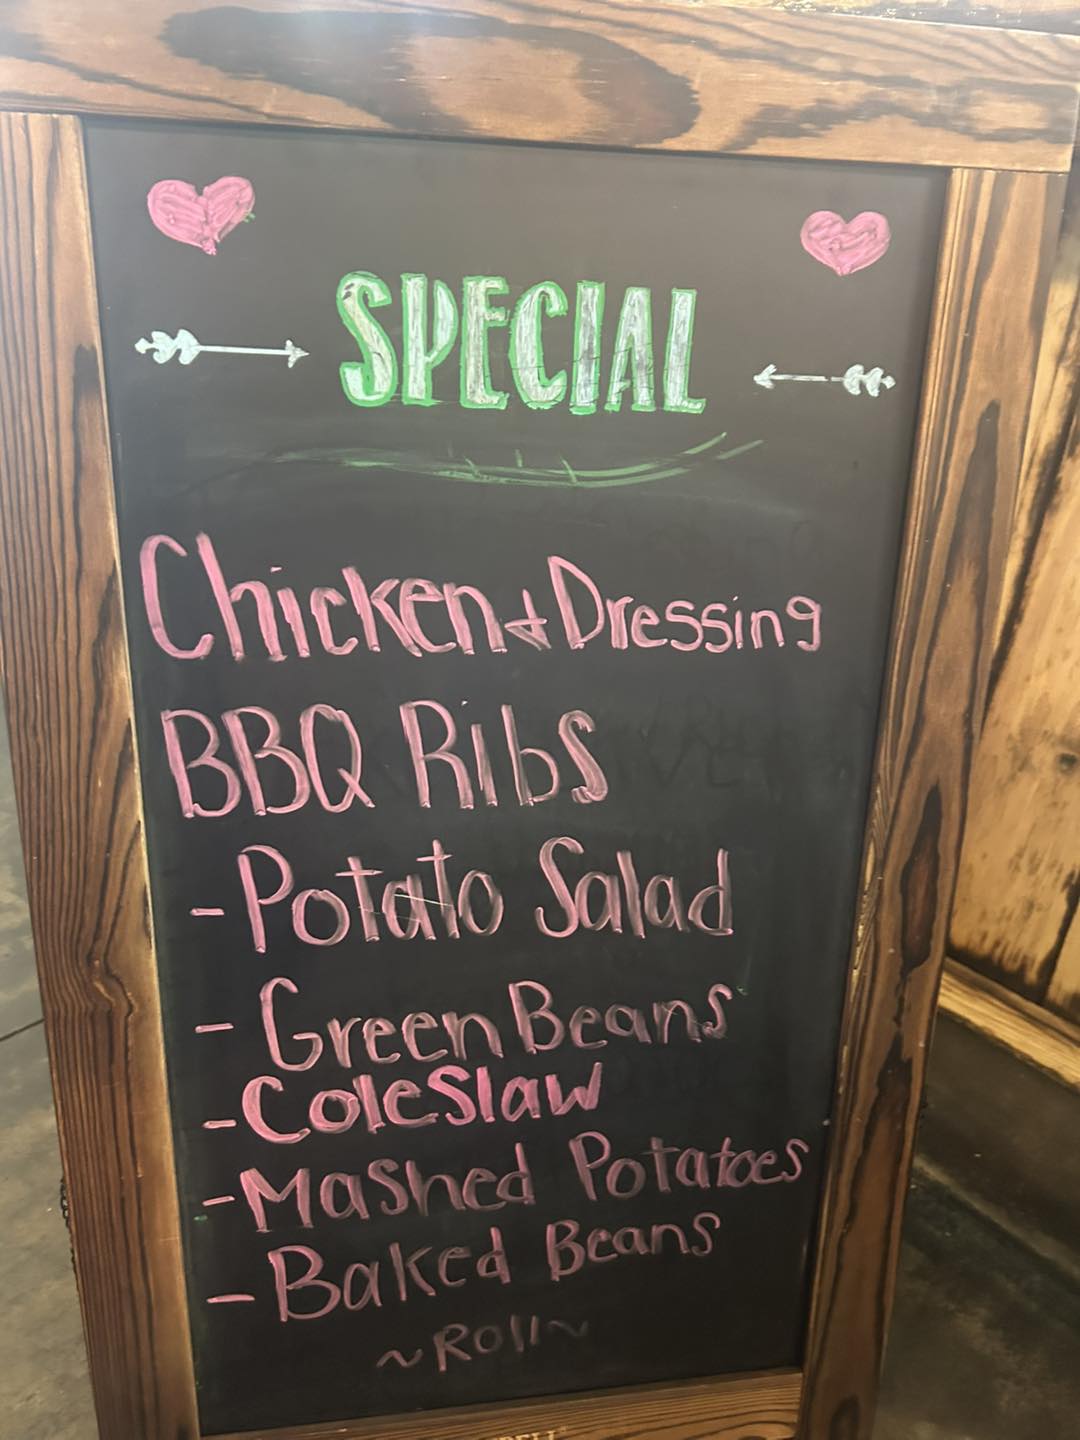 SPECIAL
Chicken & Dressing
BBQ Ribs
- Potato Salad
- Green Beans
- Coleslaw
- Mashed Potatoes
- Baked Beans
~Roll~